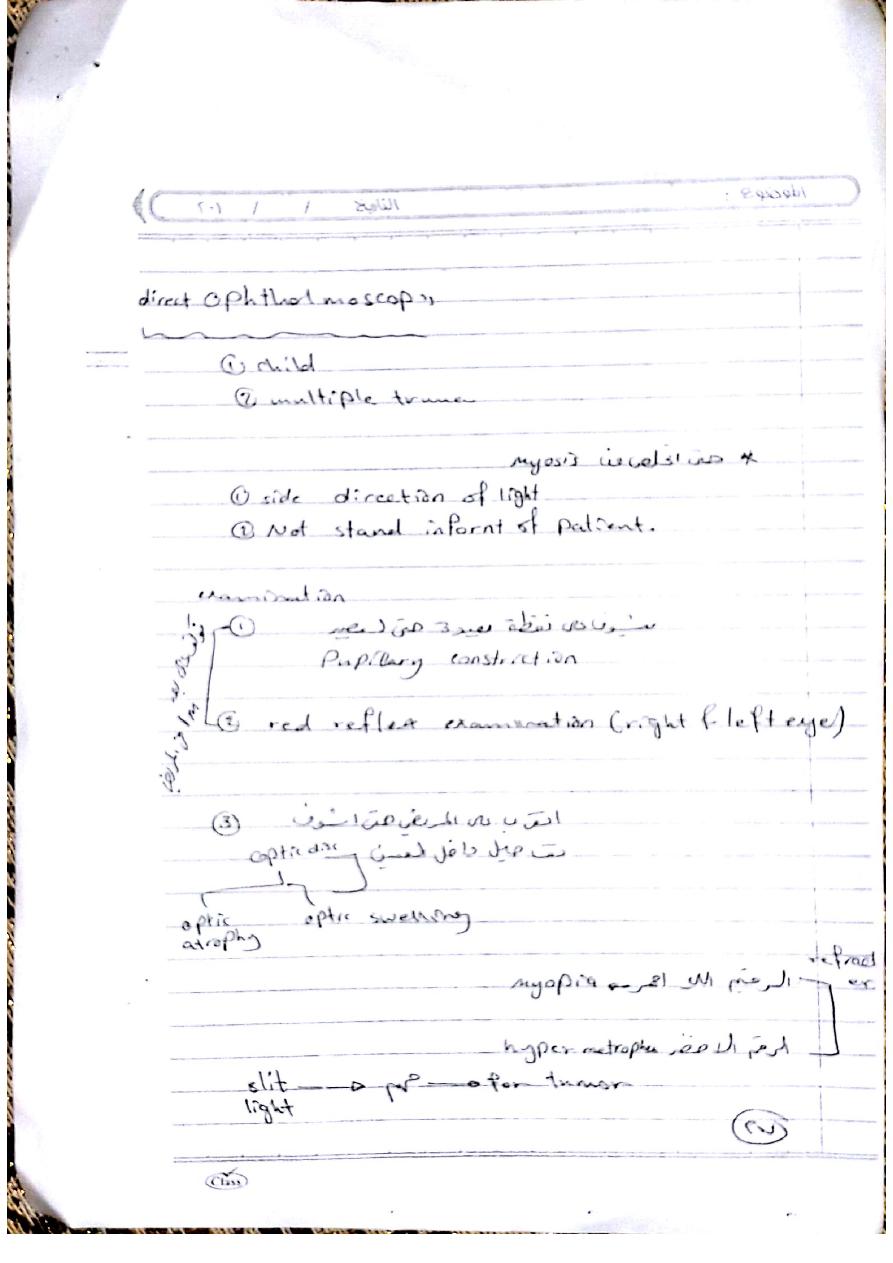 الموضوع :
التاريخ / / ٢٠١
direct ophthalmoscop
① child
② multiple truma
* حتى myosis
① side direction of light
② Not stand infornt of patient.
examination
① نقطة بعيدة حتى
Pupillary constriction
② red reflex examination (right & left eye)
③ اقترب من المريض حتى اشوف
تفاصيل داخل العين optic disc
optic atrophy
optic swelling
refract
الرقم الاحمر myopia
الرقم الاخضر hyper metropia
slit light → مهم → for tumor
Class